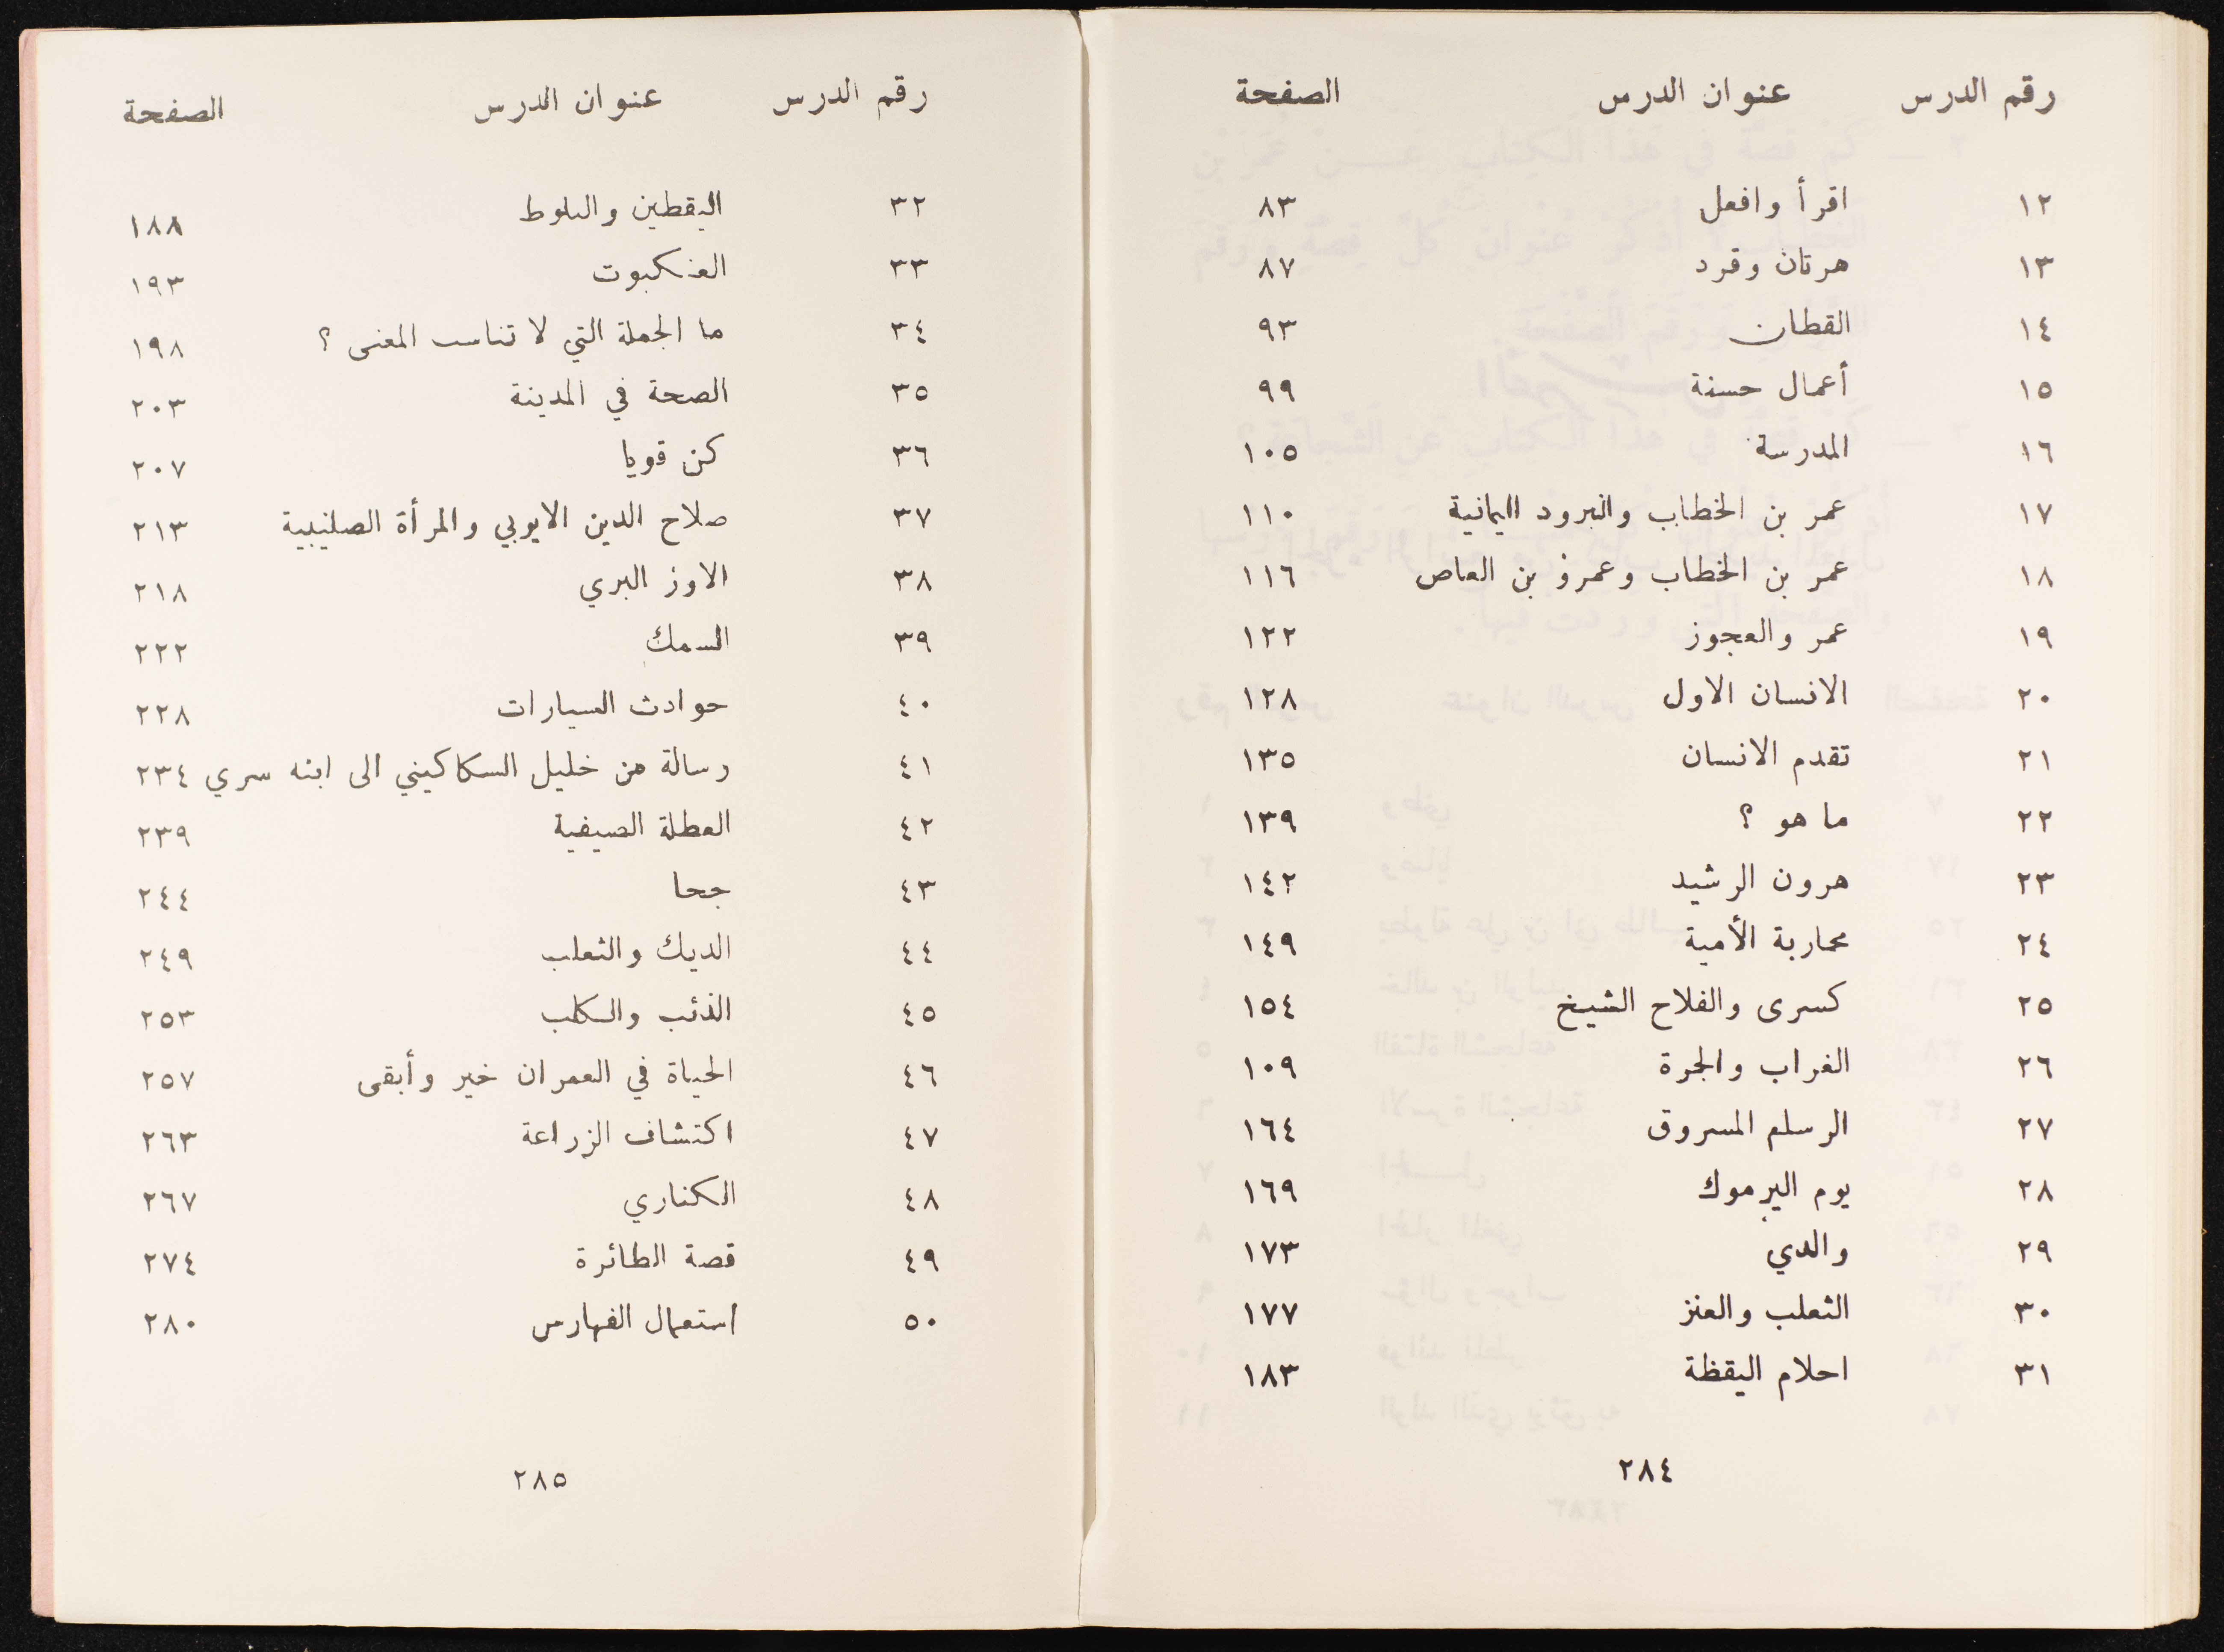 رقم الدرس عنوان الدرس الصفحة
١٢ اقرأ وافعل ٨٣
١٣ هرتان وقرد ٨٧
١٤ القطان ٩٣
١٥ أعمال حسنة ٩٩
١٦ المدرسة ١٠٥
١٧ عمر بن الخطاب والبرود اليمانية ١١٠
١٨ عمر بن الخطاب وعمرو بن العاص ١١٦
١٩ عمر والعجوز ١٢٢
٢٠ الانسان الاول ١٢٨
٢١ تقدم الانسان ١٣٥
٢٢ ما هو ؟ ١٣٩
٢٣ هرون الرشيد ١٤٢
٢٤ محاربة الأمية ١٤٩
٢٥ كسرى والفلاح الشيخ ١٥٤
٢٦ الغراب والجرة ١٠٩
٢٧ الرسلم المسروق ١٦٤
٢٨ يوم اليرموك ١٦٩
٢٩ والدي ١٧٣
٣٠ الثعلب والعنز ١٧٧
٣١ احلام اليقظة ١٨٣
٢٨٤
رقم الدرس عنوان الدرس الصفحة
٣٢ اليقطين والبلوط ١٨٨
٣٣ العنكبوت ١٩٣
٣٤ ما الجملة التي لا تناسب المعنى ؟ ١٩٨
٣٥ الصحة في المدينة ٢٠٣
٣٦ كن قويا ٢٠٧
٣٧ صلاح الدين الايوبي والمرأة الصليبية ٢١٣
٣٨ الاوز البري ٢١٨
٣٩ السمك ٢٢٢
٤٠ حوادث السيارات ٢٢٨
٤١ رسالة من خليل السكاكيني الى ابنه سري ٢٣٤
٤٢ العطلة الصيفية ٢٣٩
٤٣ جحا ٢٤٤
٤٤ الديك والثعلب ٢٤٩
٤٥ الذئب والكلب ٢٥٣
٤٦ الحياة في العمران خير وأبقى ٢٥٧
٤٧ اكتشاف الزراعة ٢٦٣
٤٨ الكناري ٢٦٧
٤٩ قصة الطائرة ٢٧٤
٥٠ استعمال الفهارس ٢٨٠
٢٨٥